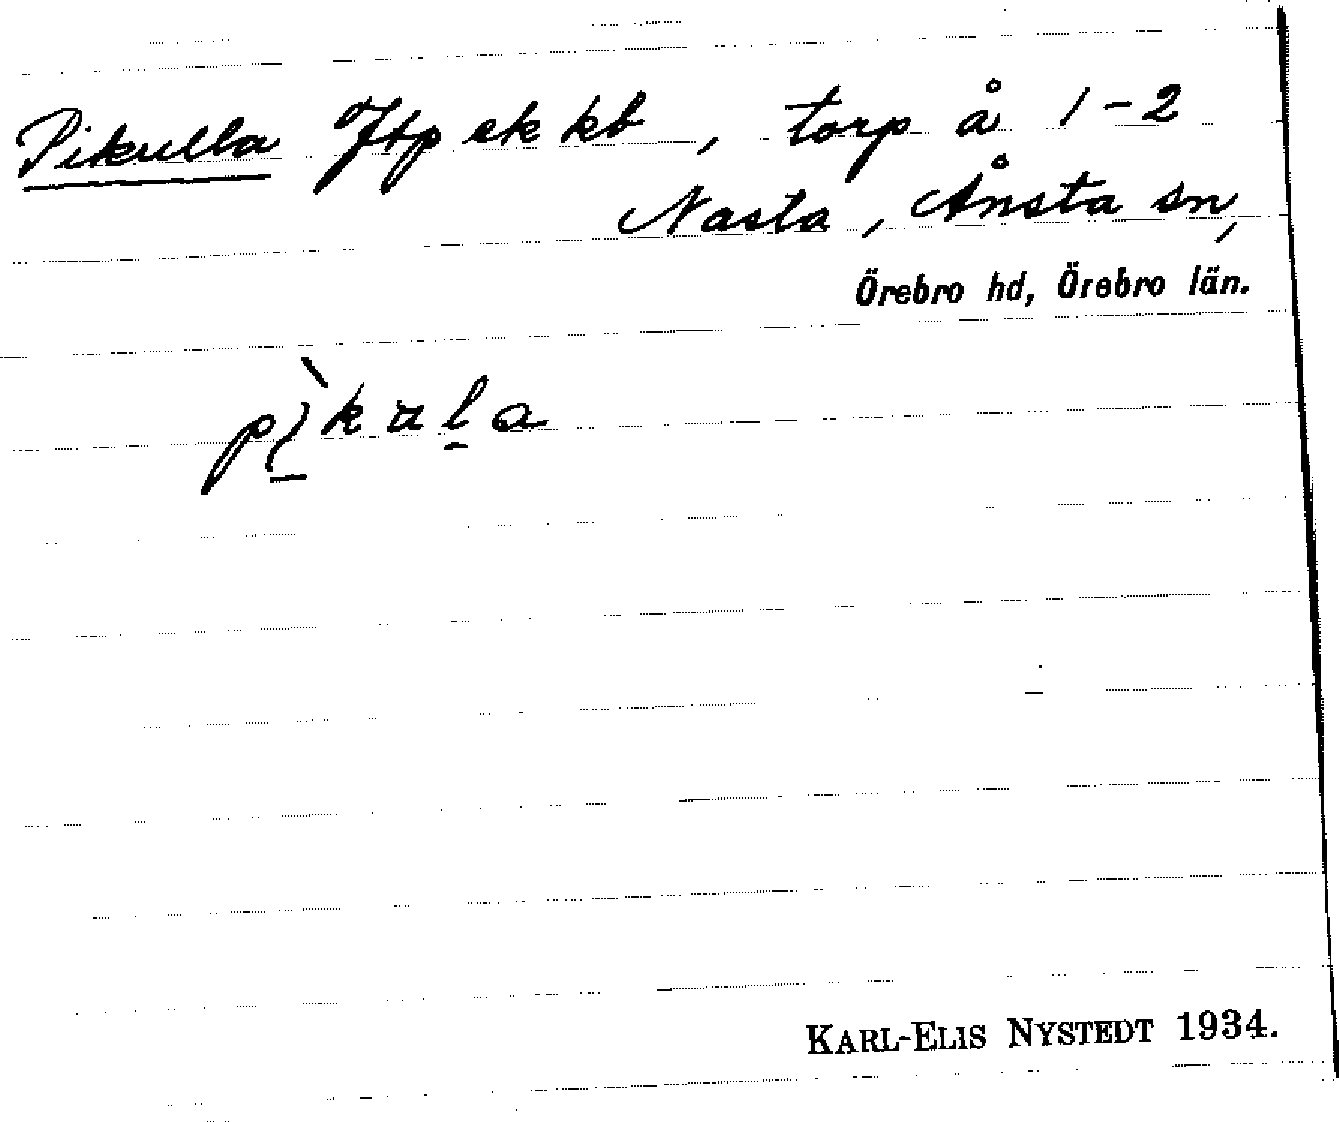 Pikulla Jtp ek kb, torp å 1-2
Nasta, Ånsta sn,
Örebro hd, Örebro län.
pìkula
KARL-ELIS NYSTEDT 1934.